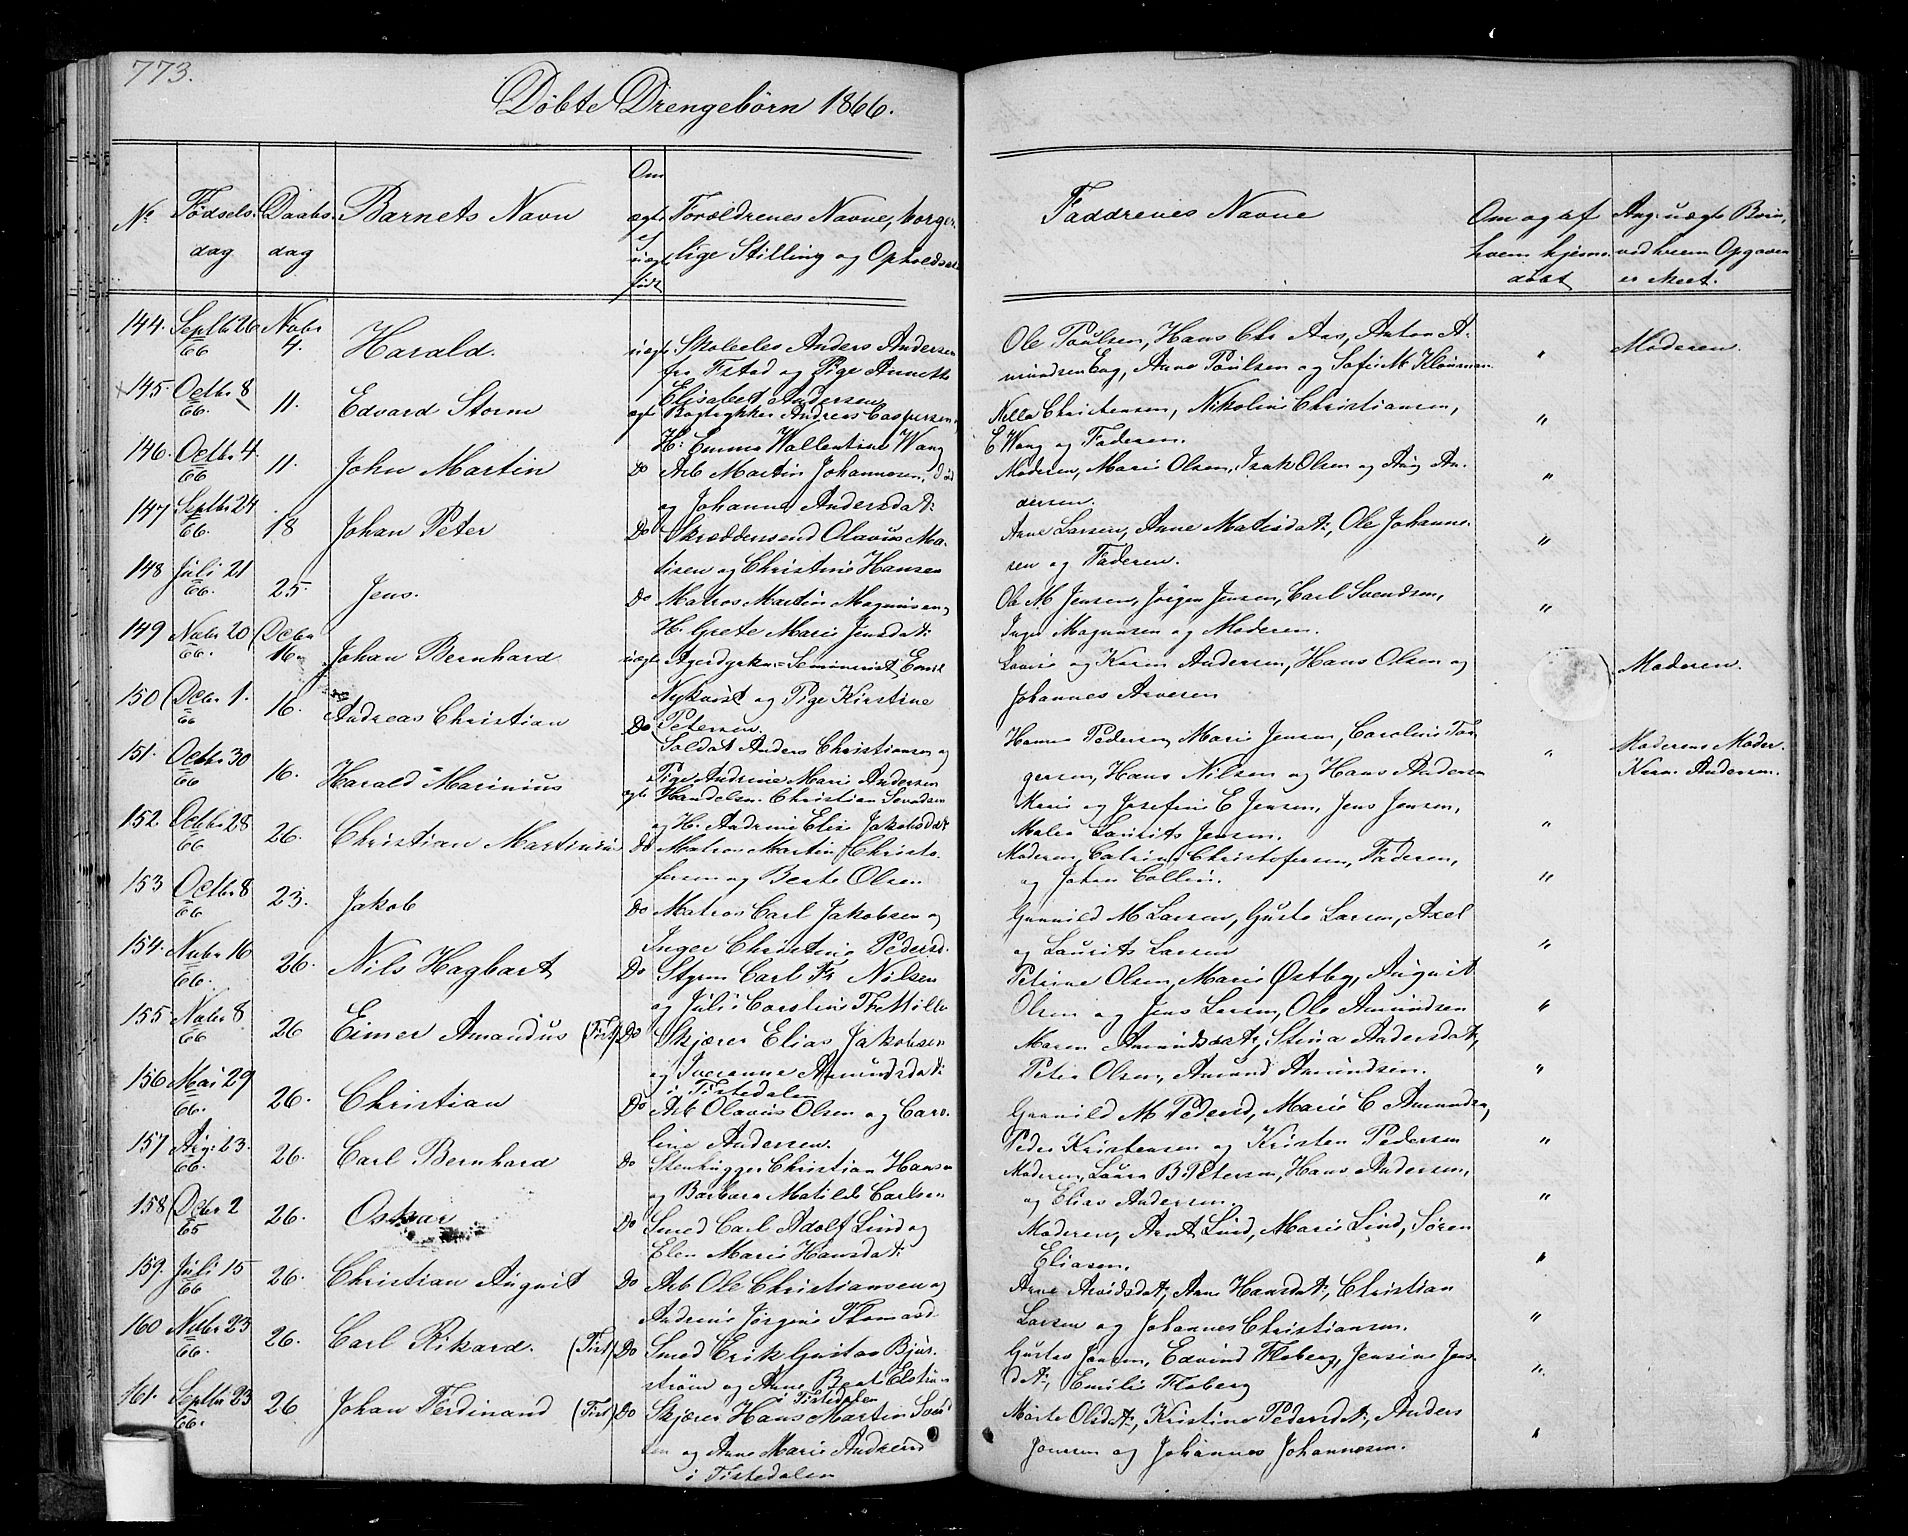 773.
Döbte Drengebörn 1866.
No Fødsels dag Daabs dag Barnets Navn Om ægte el. uægte født Forældrenes Navne, borgerlige Stilling og Opholdssted Faddrenes Navne Om og af hvem hjemmedöbt Ang: uægte Börn, ved hvem Opgaven er skeet.
144. Septbr 26 66 Novbr 4. Harald. uægte Anders Andersen Ole Poulsen, Hans Chr Aas, Anton A- " Moderen.
fra Fstad og Pige Annette mundsen Eng, Anne Poulsen og Sofie M
Elisabet Andersen
145 Octbr 8 66 11. Edvard Storm ægte Bogtrykker Andreas Caspersen, Christensen, Nikoline Christiansen, "
H: Emma Wallentine Wang E Wang og Faderen.
146. Octbr 4 66 11. John Martin Do Arb Martin Johannesen, död Moderen, Marie Olsen, Isak Olsen og Aug An- "
og Johanne Andersdat: dersen.
147 Septbr 24 66. 18 Johan Peter Do Skræddersvend Olavus Ma- Anne Larsen, Anne Matisdat:, Ole Johanne- "
tisen og Christine Hansen sen og Faderen.
148 Juli 21 66. 25. Jens. Do Matros Martin Magnusen, Ole M Jensen, Jörgen Jensen, Carl Svendsen, "
H. Grete Marie Jensdat: Inger Magnusen og Moderen.
149 Novbr 20 66. Decbr 16. Johan Bernhard uægte Agerdyrkn.-Seminarist Emil Lovise og Karen Andersen, Hans Olsen og Moderen.
Nykvist og Pige Kirstine Johannes Arvesen
Petersen
150 Decbr 1. 66 16. Andreas Christian Do Soldat Anders Christiansen og Hanna Pedersen, Marie Jensen, Caroline Tor- " Moderens Moder.
Pige Andrine Marie Andersen gersen, Hans Nilsen og Hans Andersen Andersen.
151. Octbr 30 66 16. Harald Marinius ægte Handelsm. Christian Svendsen Marie og Josefine E Jensen, Jens Jensen, "
og H. Andrine Elise Jakobsdat Maler Laurits Jensen.
152. Octbr 28 66 26. Christian Martinius Do Matros Martin Christo- Moderen, Catrine Christofersen, Faderen, "
fersen og Berte Olsen og Johan Collin.
153 Octbr 8 66 23. Jakob Do Matros Carl Jakobsen og Gunnild M Larsen, Gusta Larsen, Axel "
Inger Christine Pedersd. og Laurits Larsen
154. Novbr 16 66. 26. Nils Hagbart Do Styrm Carl Fr Nilsen Petrine Olsen, Marie Østby, August "
og Juli Caroline Th Olsen og Jens Larsen, Ole Amundsen
155 Novbr 8 66 26 Eimer Amandus (Tist) Do Skjærer Elias Jakobsen Maren Amundsdat:, Stina Andersdat:, "
og Amundsdat: Peter Olsen, Amund Amundsen.
i Tistedalen
156 Mai 29 66. 26. Christian Do Arb Olavus Olsen og Caro- Gunnild M Pedersd, Marie C Amundsen,
line Andersen. Peder Kristensen og Kristen Pedersen "
157 Aug: 23. 66. 26. Carl Bernhard Do Stenhugger Christian Hansen Moderen, Laura B. Petersen, Hans Andersen,
og Barbara Matilde Carlsen og Elias Andersen. "
158 Decbr 2 65 26. Oskar Do Smed Carl Adolf Lind og Moderen, Arnt Lind, Marie Lind, Sören
Elen Marie Hansdat: Eliasen. "
159. Juli 15 66 26. Christian August Do Arb Ole Christiansen og Anne Arvidsdat:, Anne Hansdat:, Christian
Andrine Jörgine Thomasd Larsen og Johannes Christiansen. "
160 Novbr 23 66. 26. Carl Rikard. (Tist) Do Smed Erik Gustav Bjur- Gustav Jansen, Edvind Floberg, Jensine Jens-
ström og Anne Beate dat:, Emilie Floberg "
i Tistedalen
161. Septbr 23 66. 26 Johan Ferdinand (Tist) Do Skjærer Hans Martin Svend- Marte Olsdat:, Kristine Pedersdat:, Anders
sen og Anne Marie Jansen og Johannes Johannesen. "
i Tistedalen